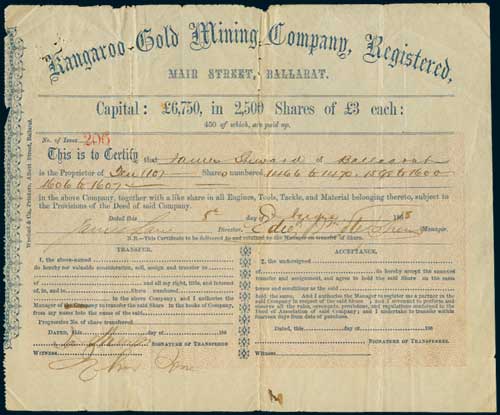 Kangaroo Gold Mining Company, Registered,
MAIR STREET, BALLARAT.
Capital: £6,750, in 2,500 Shares of £3 each:
450 of which, are paid up.
No. of Issue 206
This is to Certify that James Steward of Ballaarat
is the Proprietor of Ten (10) Shares numbered 1466 to 1470. 1598 to 1600
1606 to 1607
in the above Company, together with a like share in all Engines, Tools, Tackle, and Material belonging thereto, subject to
the Provisions of the Deed of said Company.
Dated this day of 186
James Director. Manager
N.B.—This Certificate to be delivered to and retained by the Manager on transfer of Share.
TRANSFER.
I, the above-named
do hereby for valuable consideration, sell, assign and transfer to
of and all my right, title, and interest
of, in, and to Share numbered
in the above Company; and I authorise the
Manager of the Company to transfer the said Share in the books of Company,
from my name into the name of the said
Progressive No. of share transferred
DATED, this day of 186
SIGNATURE OF TRANSFEROR
WITNESS,
ACCEPTANCE.
I, the undersigned
of do hereby accept the annexed
transfer and assignment, and agree to hold the said Share on the same
terms and conditions as the said
held the same. And I authorise the Manager to register me a partner in the
said Company in respect of the said Share; and I covenant to perform and
observe all the rules, covenants, provisions, and regulations contained in the
Deed of Association of said Company; and I undertake to transfer within
fourteen days from date of purchase.
DATED, this day of 186
SIGNATURE OF TRANSFEREE
WITNESS.